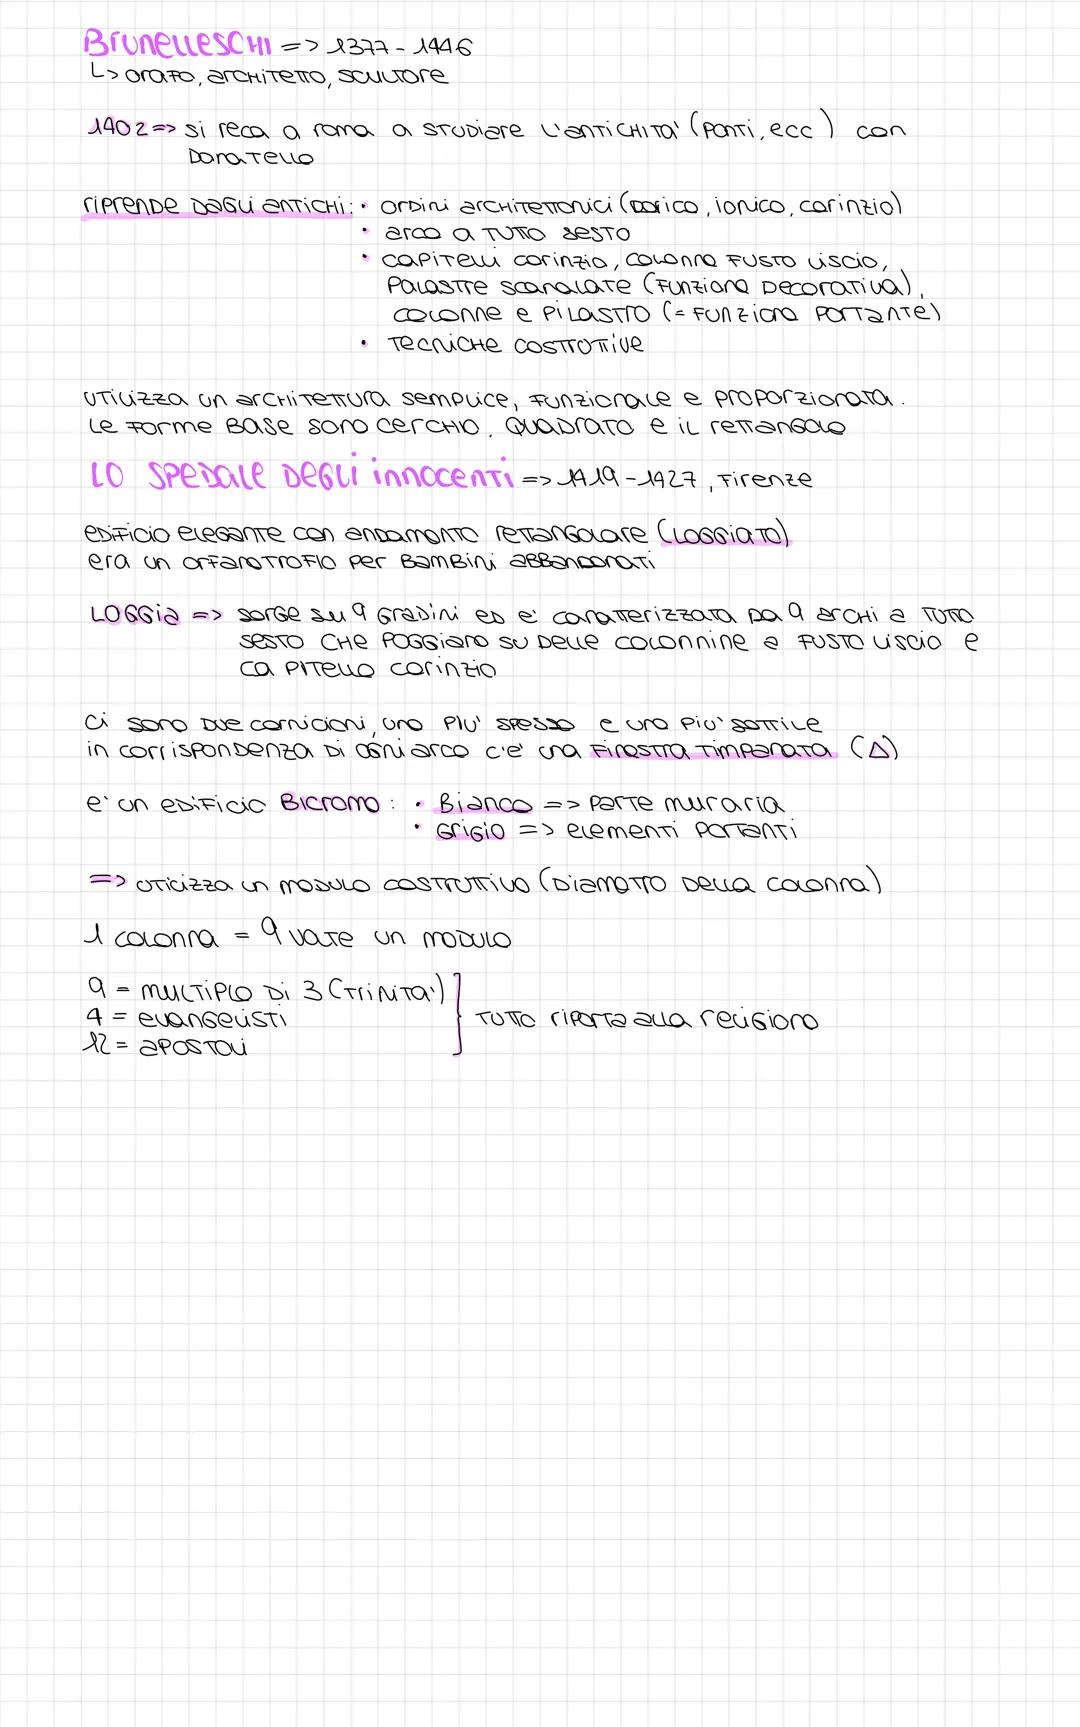 Brunelleschi => 1377 - 1446
↳ orafo, architetto, scultore
1402 => si reca a roma a studiare l'antichità' (ponti, ecc) con
Donatello
riprende dagli antichi: • ordini architettonici (dorico, ionico, corinzio)
• arco a tutto sesto
• capitelli corinzio, colonna fusto liscio,
palastre scanalate (funzione decorativa),
colonne e pilastro (= funzione portante)
• tecniche costruttive
utilizza un architettura semplice, funzionale e proporzionata.
le forme base sono cerchio, quadrato e il rettangolo
LO SPEDALE DEGLI INNOCENTI => 1419 - 1427, Firenze
edificio elegante con andamento rettangolare (loggiato)
era un orfanotrofio per bambini abbandonati
LOGGIA => sorge su 9 gradini ed e' caratterizzata da 9 archi a tutto
sesto che poggiano su delle colonnine a fusto liscio e
ca pitello corinzio
ci sono due cornicioni, uno piu' spesso e uno piu' sottile
in corrispondenza di ogni arco c'e' una finestra timpanata (△)
e' un edificio bicromo: • Bianco => parte muraria
• Grigio => elementi portanti
=> utilizza un modulo costruttivo (diametro della colonna)
1 colonna = 9 volte un modulo
9 = multiplo di 3 (trinita')
4 = evangelisti
12 = apostoli
} tutto riporta alla religione